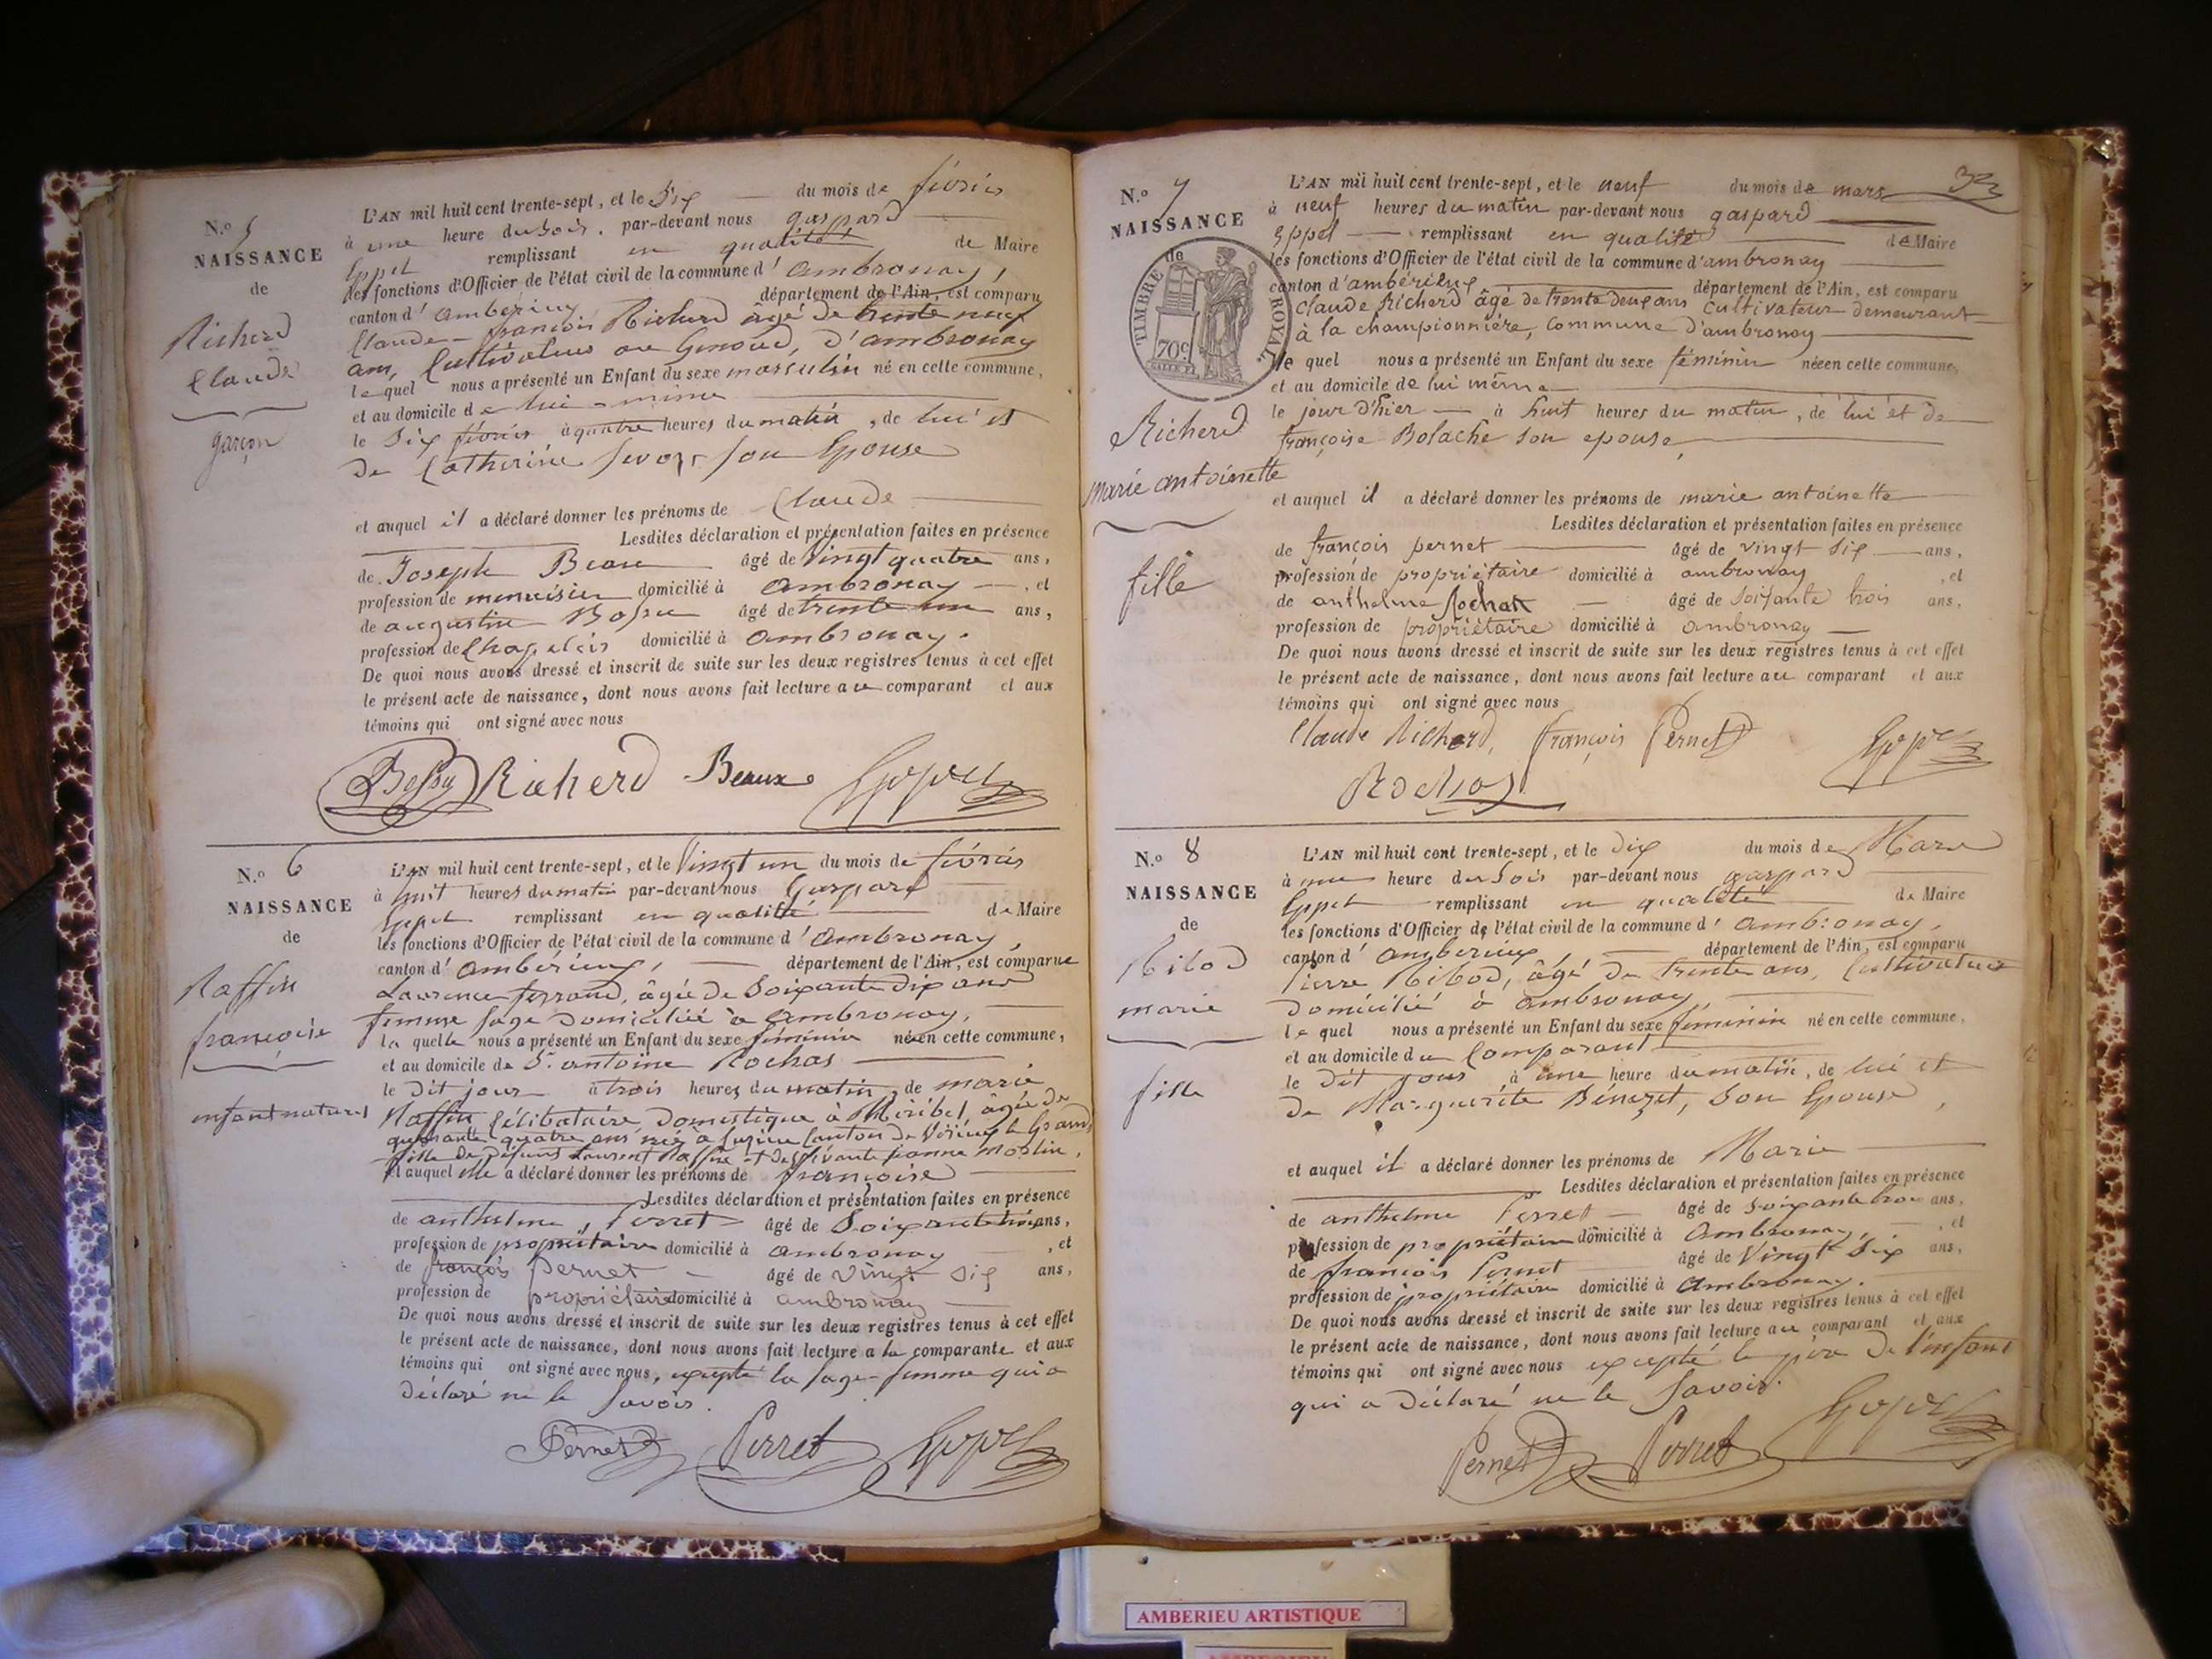 N.º 5
NAISSANCE
de
Richerd
Claude
garçon
L'AN mil huit cent trente-sept, et le Six du mois de février
à une heure du soir, par-devant nous gaspard
Eppel remplissant en qualité de Maire
les fonctions d'Officier de l'état civil de la commune d'ambronay,
canton d'ambérieux département de l'Ain, est comparu
Claude-françois Richerd âgé de trente neuf
ans, Cultivateur au Genoud, d'ambronay
lequel nous a présenté un Enfant du sexe masculin né en cette commune,
et au domicile de lui-même
le Six février à quatre heures du matin, de lui et
de Catherine son Epouse
et auquel il a déclaré donner les prénoms de Claude
Lesdites déclaration et présentation faites en présence
de Joseph Beau âgé de Vingt quatre ans,
profession de menuisier domicilié à ambronay, et
de augustin âgé de trente un ans,
profession de Chapelier domicilié à ambronay.
De quoi nous avons dressé et inscrit de suite sur les deux registres tenus à cet effet
le présent acte de naissance, dont nous avons fait lecture au comparant et aux
témoins qui ont signé avec nous
Richerd Beaux Eppel
N.º 6
NAISSANCE
de
Raffin
françoise
enfant naturel
L'AN mil huit cent trente-sept, et le Vingt un du mois de février
à huit heures du matin par-devant nous Gaspard
Eppel remplissant en qualité de Maire
les fonctions d'Officier de l'état civil de la commune d'ambronay,
canton d'ambérieux, département de l'Ain, est comparue
Laurence ferrand, âgée de Soixante dix ans
femme sage domiciliée à ambronay,
laquelle nous a présenté un Enfant du sexe féminin née en cette commune,
et au domicile de Sr. antoine Rochas
le dit jour à trois heures du matin, de marie
Raffin Célibataire, Domestique à Miribel, âgée de
quarante quatre ans née à Canton de Virieu le Grand
fille de défunt Laurent Raffin et de vivante jeanne
et auquel elle a déclaré donner les prénoms de françoise
Lesdites déclaration et présentation faites en présence
de anthelme Perret âgé de Soixante trois ans,
profession de propriétaire domicilié à ambronay, et
de françois pernet âgé de Vingt Six ans,
profession de propriétaire domicilié à ambronay
De quoi nous avons dressé et inscrit de suite sur les deux registres tenus à cet effet
le présent acte de naissance, dont nous avons fait lecture a la comparante et aux
témoins qui ont signé avec nous, excepté la sage-femme qui a
déclaré ne le savoir.
Pernet Perret Eppel
33
N.º 7
NAISSANCE
TIMBRE ROYAL
70c
Richerd
marie antoinette
fille
L'AN mil huit cent trente-sept, et le neuf du mois de mars
à neuf heures du matin par-devant nous gaspard
Eppel remplissant en qualité de Maire
les fonctions d'Officier de l'état civil de la commune d'ambronay
canton d'ambérieux département de l'Ain, est comparu
Claude Richerd âgé de trente deux ans Cultivateur demeurant
à la championnière, Commune d'ambronay
lequel nous a présenté un Enfant du sexe féminin née en cette commune,
et au domicile de lui même
le jour d'hier à huit heures du matin, de lui et de
françoise Bolache son epouse,
et auquel il a déclaré donner les prénoms de marie antoinette
Lesdites déclaration et présentation faites en présence
de françois pernet âgé de vingt six ans,
profession de propriétaire domicilié à ambronay, et
de anthelme Rochas âgé de soixante trois ans,
profession de propriétaire domicilié à ambronay
De quoi nous avons dressé et inscrit de suite sur les deux registres tenus à cet effet
le présent acte de naissance, dont nous avons fait lecture au comparant et aux
témoins qui ont signé avec nous
Claude Richerd, françois Pernet Eppel
Rochas
N.º 8
NAISSANCE
de
Ribod
marie
fille
L'AN mil huit cent trente-sept, et le dix du mois de Mars
à une heure du soir par-devant nous gaspard
Eppel remplissant en qualité de Maire
les fonctions d'Officier de l'état civil de la commune d'ambronay,
canton d'ambérieux, département de l'Ain, est comparu
Pierre Ribod, âgé de trente ans, Cultivateur
domicilié à ambronay,
lequel nous a présenté un Enfant du sexe féminin né en cette commune,
et au domicile du Comparant
le dit jour à une heure du matin, de lui et
de Marguerite Bénezet, son Epouse,
et auquel il a déclaré donner les prénoms de Marie
Lesdites déclaration et présentation faites en présence
de anthelme Perret âgé de soixante trois ans,
profession de propriétaire domicilié à ambronay, et
de françois Pernet âgé de Vingt Six ans,
profession de propriétaire domicilié à ambronay.
De quoi nous avons dressé et inscrit de suite sur les deux registres tenus à cet effet
le présent acte de naissance, dont nous avons fait lecture au comparant et aux
témoins qui ont signé avec nous excepté le père de l'enfant
qui a déclaré ne le savoir.
Pernet Perret Eppel
AMBERIEU ARTISTIQUE